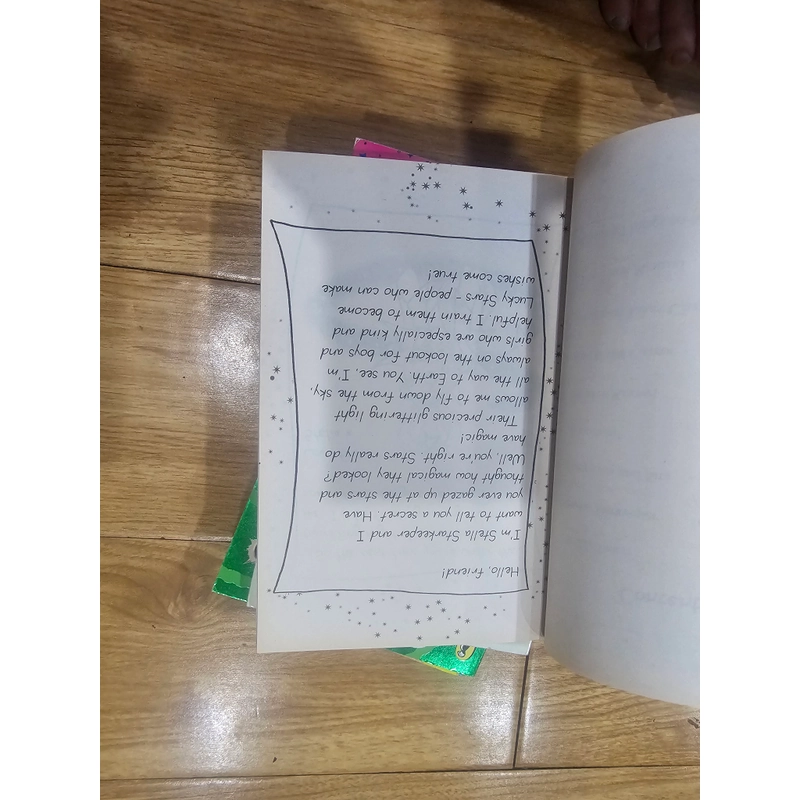 Hello, friend!
I'm Stella Starkeeper and I
want to tell you a secret. Have
you ever gazed up at the stars and
thought how magical they looked?
Well, you're right. Stars really do
have magic!
Their precious glittering light
allows me to fly down from the sky,
all the way to Earth. You see, I'm
always on the lookout for boys and
girls who are especially kind and
helpful. I train them to become
Lucky Stars – people who can make
wishes come true!